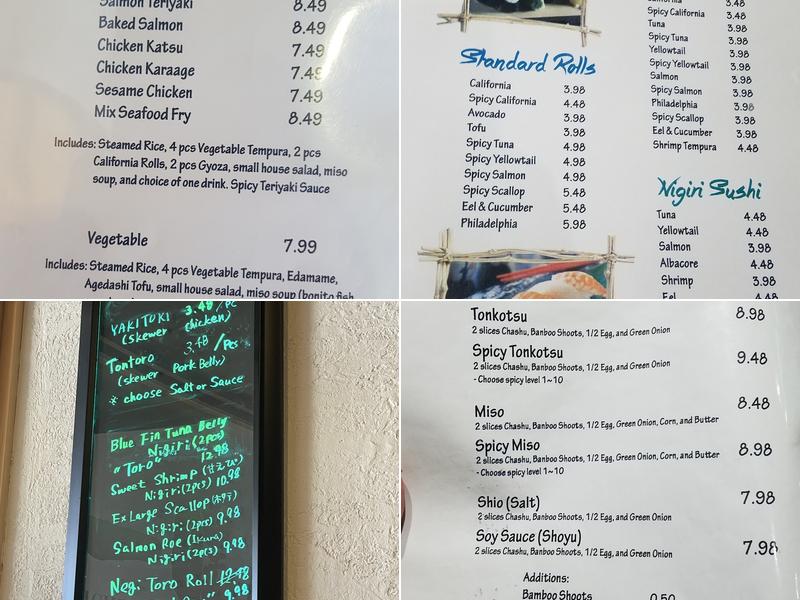 Salmon Teriyaki 8.49
Baked Salmon 8.49
Chicken Katsu 7.49
Chicken Karaage 7.49
Sesame Chicken 7.49
Mix Seafood Fry 8.49
Includes: Steamed Rice, 4 pcs Vegetable Tempura, 2 pcs
California Rolls, 2 pcs Gyoza, small house salad, miso
soup, and choice of one drink. Spicy Teriyaki Sauce
Vegetable 7.99
Includes: Steamed Rice, 4 pcs Vegetable Tempura, Edamame,
Agedashi Tofu, small house salad, miso soup (bonito fish
Standard Rolls
California 3.98
Spicy California 4.48
Avocado 3.98
Tofu 3.98
Spicy Tuna 4.98
Spicy Yellowtail 4.98
Spicy Salmon 4.98
Spicy Scallop 5.48
Eel & Cucumber 5.48
Philadelphia 5.98
California 3.48
Spicy California 3.48
Tuna 3.98
Spicy Tuna 3.98
Yellowtail 3.98
Spicy Yellowtail 3.98
Salmon 3.98
Spicy Salmon 3.98
Philadelphia 3.98
Spicy Scallop 3.98
Eel & Cucumber 3.98
Shrimp Tempura 4.48
Nigiri Sushi
Tuna 4.48
Yellowtail 4.48
Salmon 3.98
Albacore 4.48
Shrimp 3.98
Eel 4.48
YAKITORI 3.48/Pc
(skewer chicken)
Tontoro 3.48/Pcs
(skewer Pork Belly)
※ choose Salt or Sauce
Blue Fin Tuna Belly
Nigiri (2pcs)
"Toro" 12.98
Sweet Shrimp (甘えび)
Nigiri (2pcs) 10.98
Ex Large Scallop (ホタテ)
Nigiri (2pcs) 9.98
Salmon Roe (Ikura)
Nigiri (2pcs) 9.98
Negi Toro Roll
9.98
Tonkotsu 8.98
2 slices Chashu, Banboo Shoots, 1/2 Egg, and Green Onion
Spicy Tonkotsu 9.48
2 slices Chashu, Banboo Shoots, 1/2 Egg, and Green Onion
- Choose spicy level 1~10
Miso 8.48
2 slices Chashu, Banboo Shoots, 1/2 Egg, Green Onion, Corn, and Butter
Spicy Miso 8.98
2 slices Chashu, Banboo Shoots, 1/2 Egg, Green Onion, Corn, and Butter
- Choose spicy level 1~10
Shio (Salt) 7.98
2 slices Chashu, Banboo Shoots, 1/2 Egg, and Green Onion
Soy Sauce (Shoyu) 7.98
2 slices Chashu, Banboo Shoots, 1/2 Egg, and Green Onion
Additions:
Bamboo Shoots 0.50